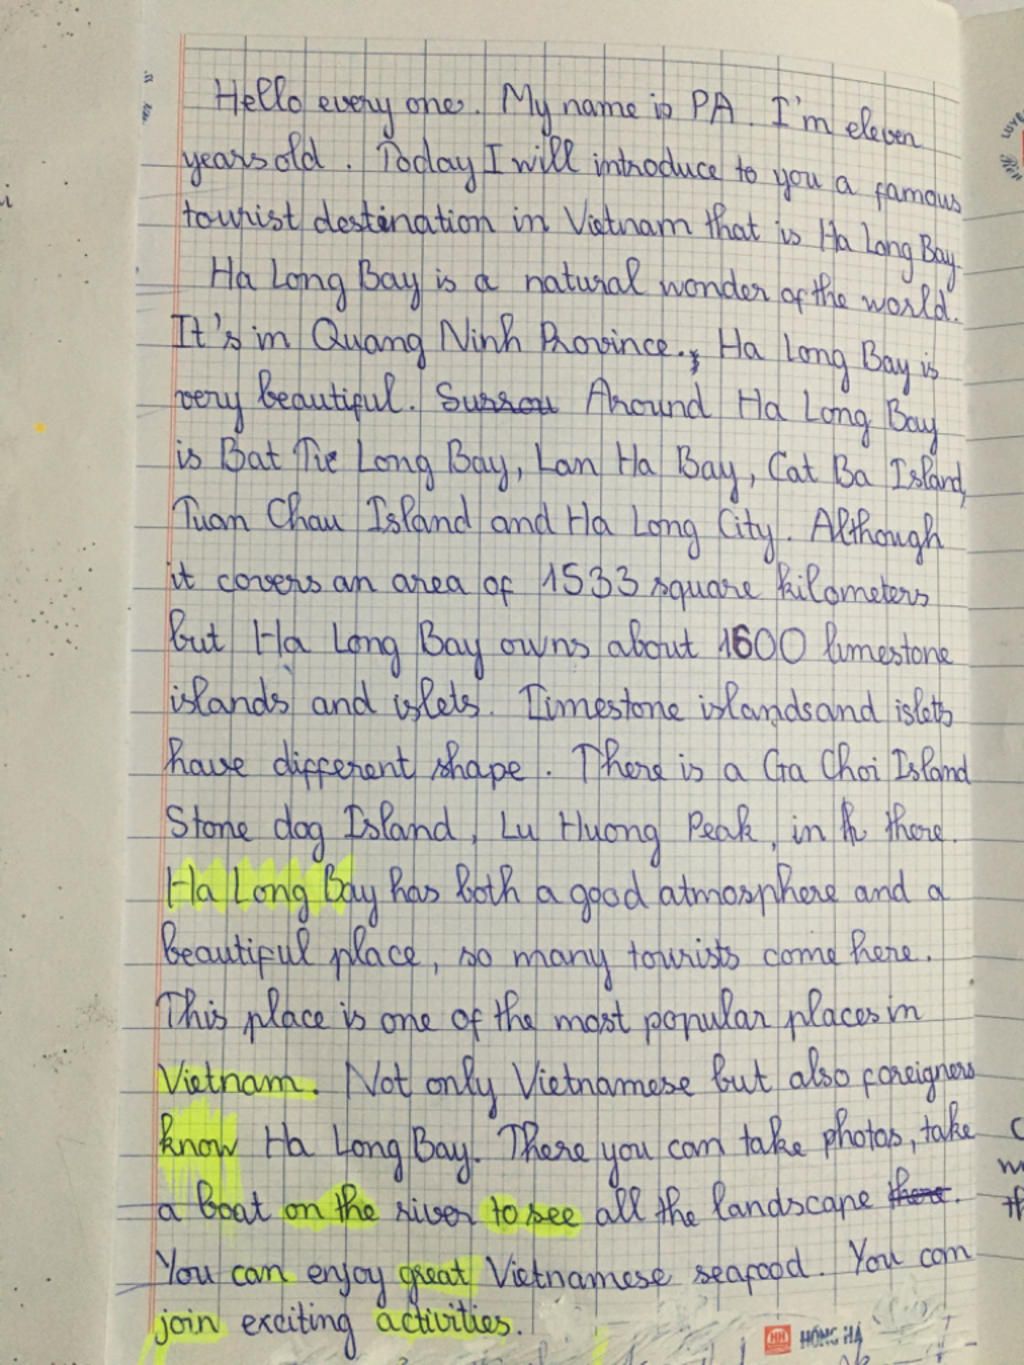 Hello every one. My name is PA. I'm eleven
years old. Today I will introduce to you a famous
tourist destination in Vietnam that is Ha Long Bay.
Ha Long Bay is a natural wonder of the world.
It's in Quang Ninh Province. Ha Long Bay is
very beautiful. Surrou Around Ha Long Bay
is Bat Tie Long Bay, Lan Ha Bay, Cat Ba Island,
Tuan Chau Island and Ha Long City. Although
it covers an area of 1533 square kilometers
but Ha Long Bay owns about 1600 limestone
islands and islets. Limestone islands and islets
have different shape. There is a Ga Choi Island
Stone dog Island, Lu Huong Peak, in th there.
Ha Long Bay has both a good atmosphere and a
beautiful place, so many tourists come here.
This place is one of the most popular places in
Vietnam. Not only Vietnamese but also foreigners
know Ha Long Bay. There you can take photos, take
a boat on the river to see all the landscape there.
You can enjoy great Vietnamese seafood. You can
join exciting activities.
HH HỒNG HÀ